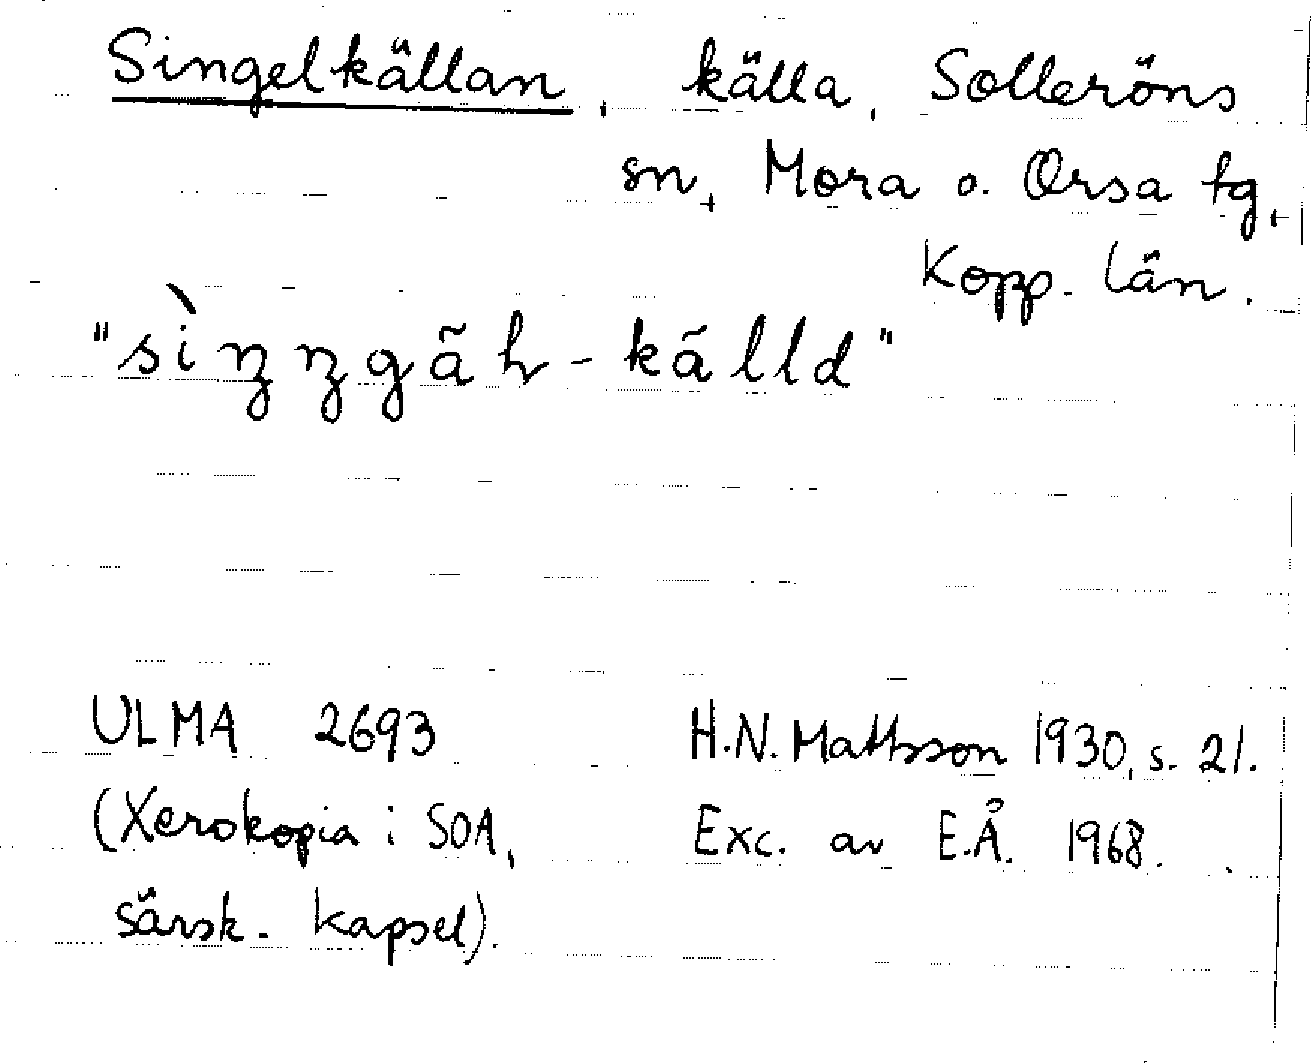 Singelkällan, källa, Solleröns
sn, Mora o. Orsa tg,
Kopp. län.
"sìȵȵgäh-källd"
ULMA 2693 H.N. Mattsson 1930, s. 21.
(Xerokopia i SOA, Exc. av E.Å. 1968.
särsk. kapsel).